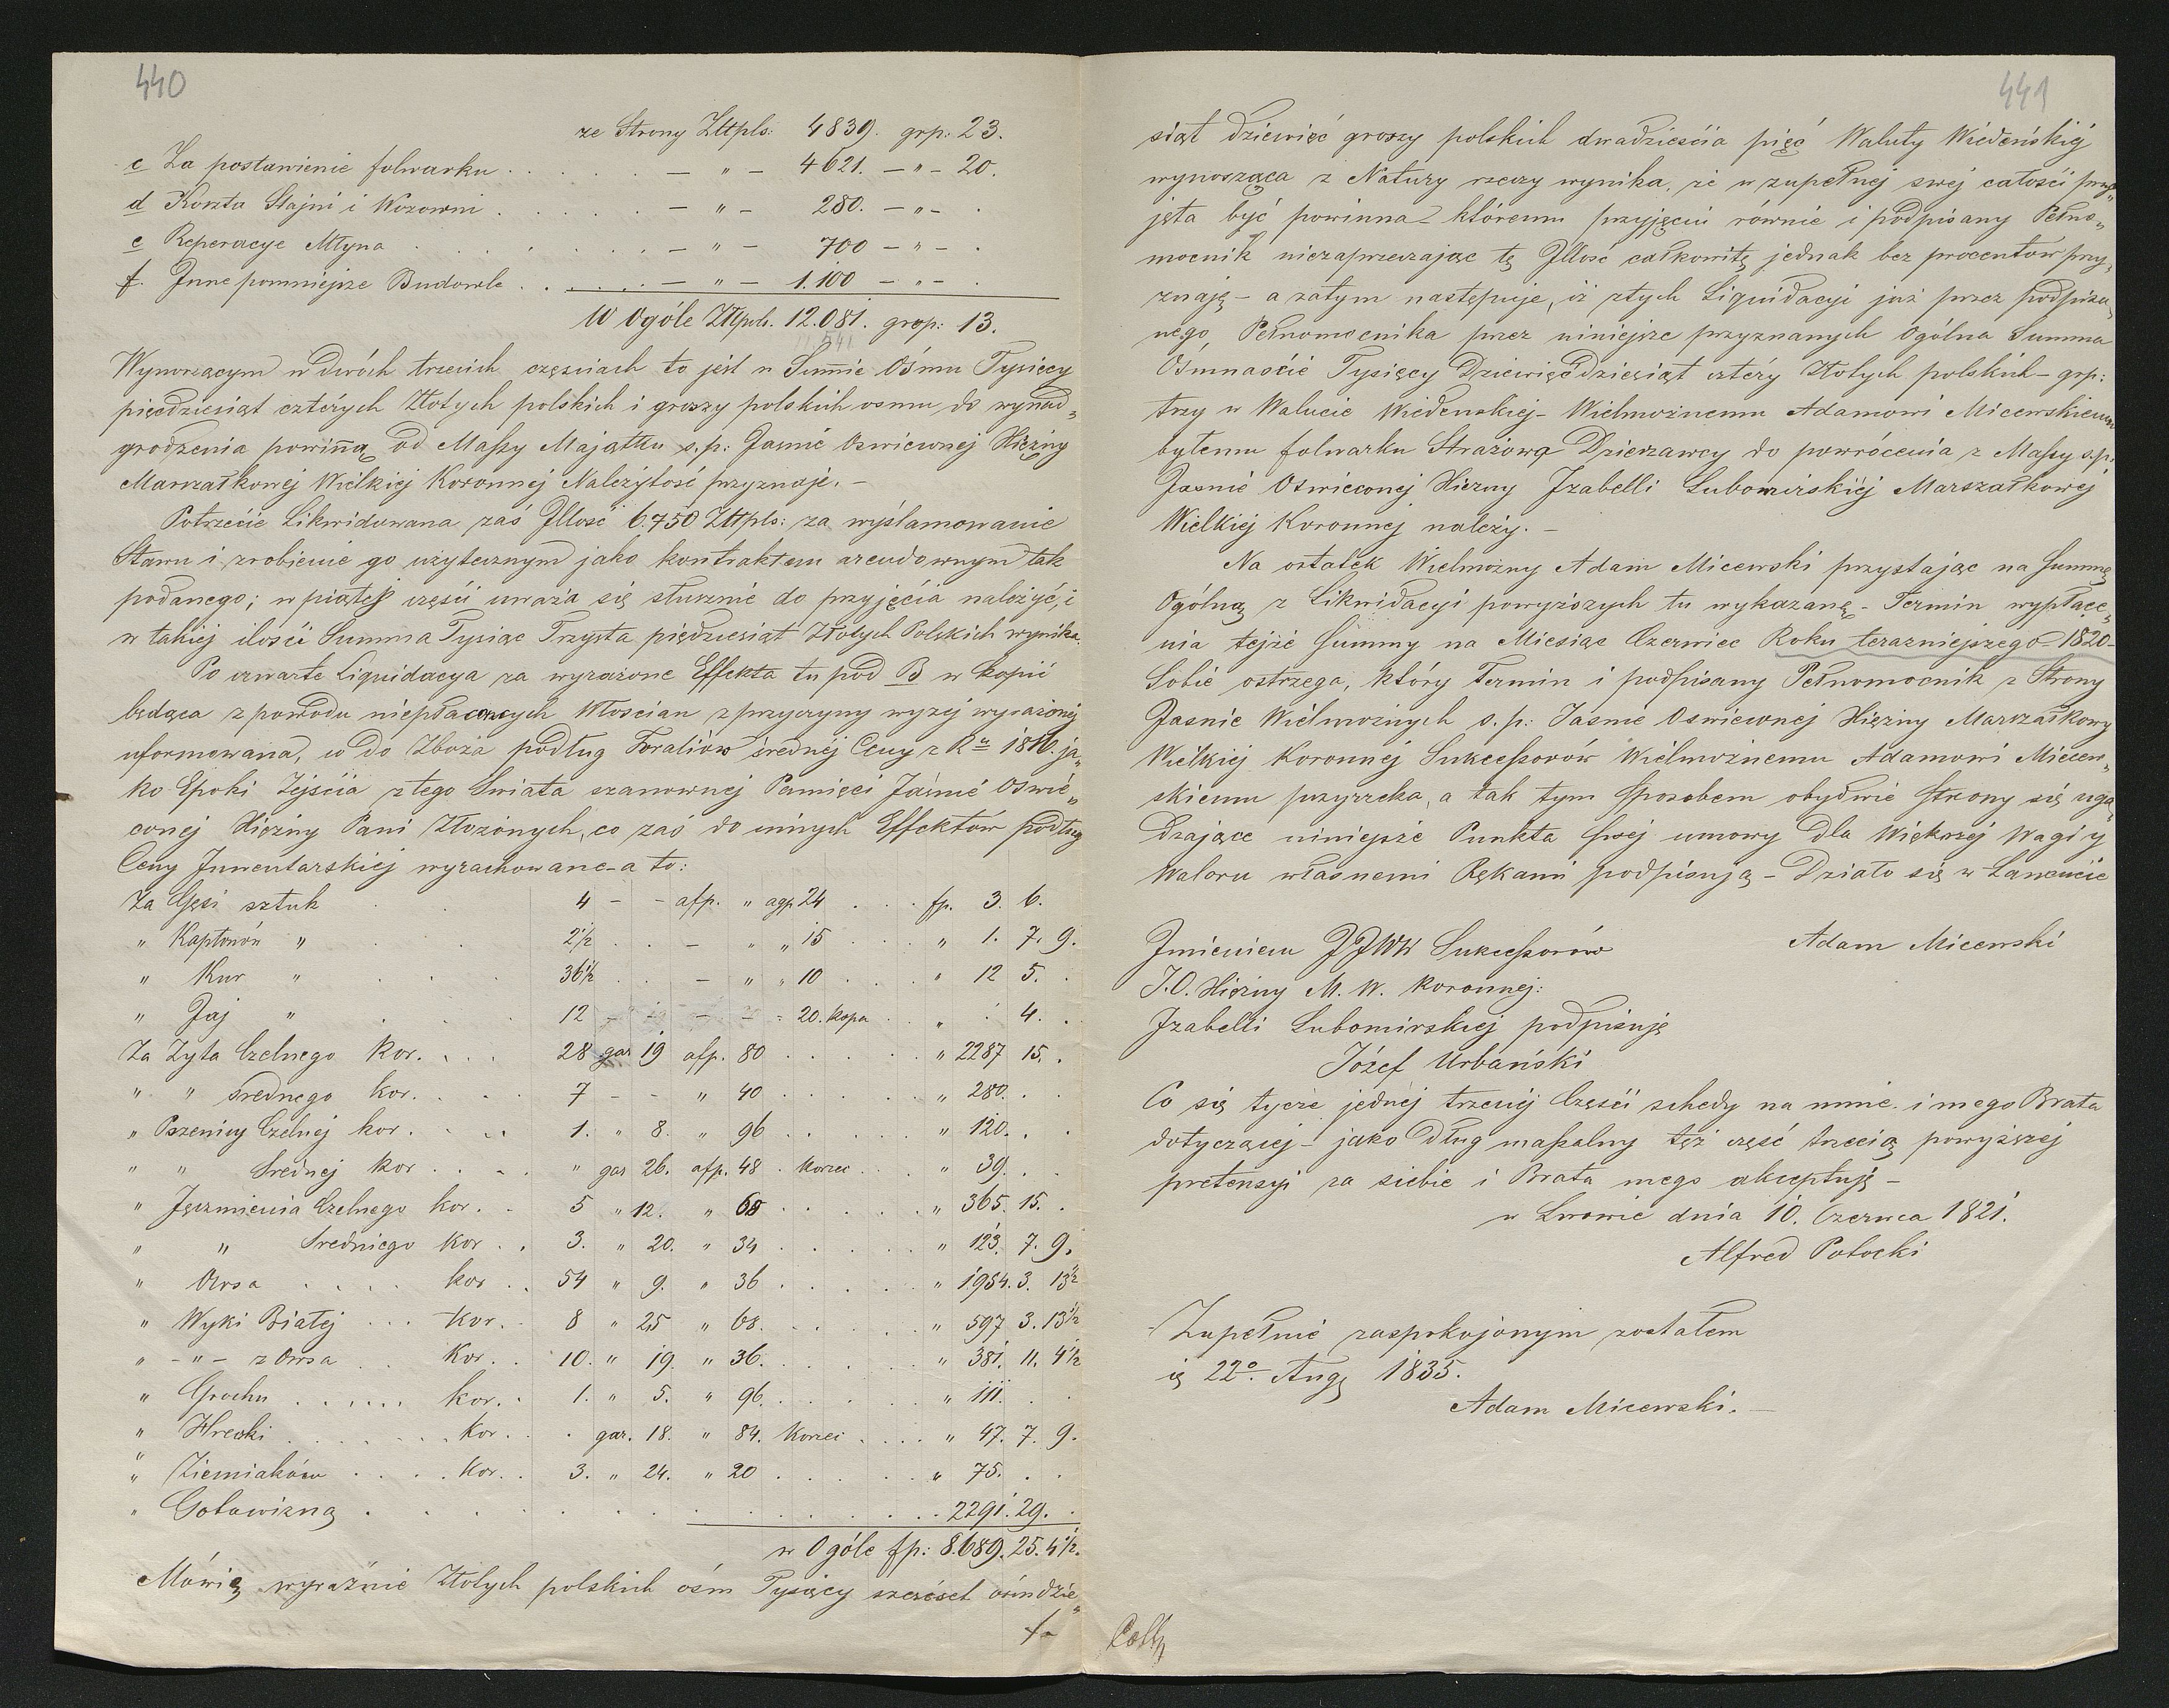 440
ze Strony Zltpls: 4839. grp: 23.
c Za postawienie folwarku . . . . . — " — 4621. — " — 20.
d Koszta Stajni i Wozowni . . . . . — " — 280. — " — .
e Reperacye Młyna . . . . . . — " — 700 — " — .
f. Inne pomniejsze Budowle . . . . . — " — 1.100 — " — .
W Ogóle Zltpols. 12.081. grop: 13.
Wynoszącym w dwóch trzecich częściach to jest w Summie Ośmu Tysięcy
pięcdziesiąt czterých Złotych polskich i groszy polskich osmu do wynad„
grodzenia powinną od Massy Majątku s.p: Jasnie Oswieconej Xiężny
Marszałkowéj Wielkiej Koronnej Należytość przyznaje. —
Potrzecie Likwidowana zaś Illość 6.750 Zltpls: za wyślamowanie
Stawu i zrobienie go użytecznym jako kontraktem arendownym tak
podanego; w piątej części uważa się słusznie do przyjęcia należyć, i
w takiej ilości Summa Tysiąc Trzysta pięcdziesiąt Złotych Polskich wynika.
Po czwarte Liquidacya za wyrażone Effekta tu pod B w kopii
będąca z powodu niepłacących Włoscian z przyczyny wyzej wyrażonéj
uformowana, co do Zboża podług Foraliów średnéj Ceny z Ru 1816. ja„
ko Epoki Zejścia z tego Swiata szanownej Pamięci Jaśnie Oświe„
conej Xiężny Pani Złożonych, co zaś do innych Effektów podług
Ceny Inwentarskiej wyrachowane - a to:
Za Gęsi sztuk . . 4 — — afp. " agp 24 . . . fp. 3. 6.
" Kapłonów " . . 2½ . . — " " 15 . . . " 1. 7. 9.
" Kur " . . . 36½ . . — " " 10 . . . " 12 5. .
" Jaj " . . . 12 — — — 20. kopa . . " . 4. .
Za Zyta Czelnego Kor. . . . 28 gar 19 afp. 80 . . . . . " 2287 15. .
" " średnego kor. . . . 7 — — " 40 . . . . . " 280. . .
" Pszenicy Czelnej kor. . . . 1. " 8. " 96 . . . . . " 120. . .
" " Średnej kor . . . " gar 26. afp. 48 . korzec . . . " 39. . .
" Jęczmienia Czelnego kor. . 5 " 12. " 68 . . . . . " 365. 15. .
" " Średniego kor . . 3. " 20. " 34 . . . . . " 123. 7. 9.
" Owsa . . . . kor . . 54 " 9. " 36 . . . . . " 1954. 3. 13½
" Wyki Białej . . . Kor. . 8 " 25 " 68. . . . . . " 597 3. 13½
" — " — z Owsa . . Kor. . 10. " 19. " 36. . . . . . " 381. 11. 4½
" Grochu . . . . . . kor. . 1. " 5. " 96. . . . . . " 111. . .
" Hrecki . . . . . . . Kor. . . gar. 18. " 84. Korzec . . . . " 47. 7. 9.
" Ziemiaków . . . . Kor. . 3. " 24. " 20 . . . . . " 75. . .
" Gotowizną . . . . . . . . . . . . . 2291. 29. .
w Ogóle fp: 8.689. 25. 4½.
Mówię wyraźnie Złotych polskich ośm Tysięcy szescset ośmdzie„
441
siąt dziewięć groszy polskich dwadzieścia pięć Waluty Wiedeńskiéj
wynosząca z Natury rzeczy wynika, że w zupełnej swej całości przy„
jęta być powinna — któremu przyjęciu równie i podpisany Pełno„
mocnik niezaprzeczając tę Illość całkowitę jednak bez procentów przy„
znaję — a zatym następuje, iż z tych Liquidacyi już przez podpisa„
nego, Pełnomocnika przez niniejsze przyznanych ogólna Summa
Ośmnaście Tysięcy Dziewięćdziesiąt cztéry Złotych polskich — grp:
trzy w Walucie Wiedenskiej — Wielmożnemu Adamowi Micewskiemu
byłemu folwarku Strażowa Dzierzawcy do powrócenia z Massy s.p.
Jasnie Oświeconej Xiezny Izabelli Lubomirskiéj Marszałkowej
Wielkiej Koronnej należy. —
Na ostatek Wielmożny Adam Micewski przystając na Summę
Ogólną z Likwidacyi powyższych tu wykazaną — Termin wypłace„
nia tejże Summy na Miesiąc Czerwiec Roku terazniejszego 1820 —
Sobie ostrzega, który Termin i podpisany Pełnomocnik z Strony
Jasnie Wielmożnych s. p: Jasnie Oswieconej Xiężny Marszałkowy
Wielkiej Koronnéj Sukcessorów Wielmożnemu Adamowi Micew„
skiemu przyrzeka, a tak tym sposobem obydwie strony się zga„
dzające niniejsze Punkta swej umowy dla Większej Wagi y
Waloru własnemi Rękami podpisują — Działo się w Łancucie
Adam Micewski
Imieniem JJWW Sukcessorów
J. O. Xiężny M. W. Koronnej:
Izabelli Lubomirskiej podpisuję
Józef Urbański
Co się tycze jednéj trzeciéj Części schedy na mnie i mego Brata
dotyczącej — jako Dług massalny téż część trzecią powyższej
pretensyi za siebie i Brata mego akceptuję —
w Lwowie dnia 10. Czerwca 1821.
Alfred Potocki
Zupełnie zaspokojonym zostałem
22o. Aug 1835.
Adam Micewski. —
Coll